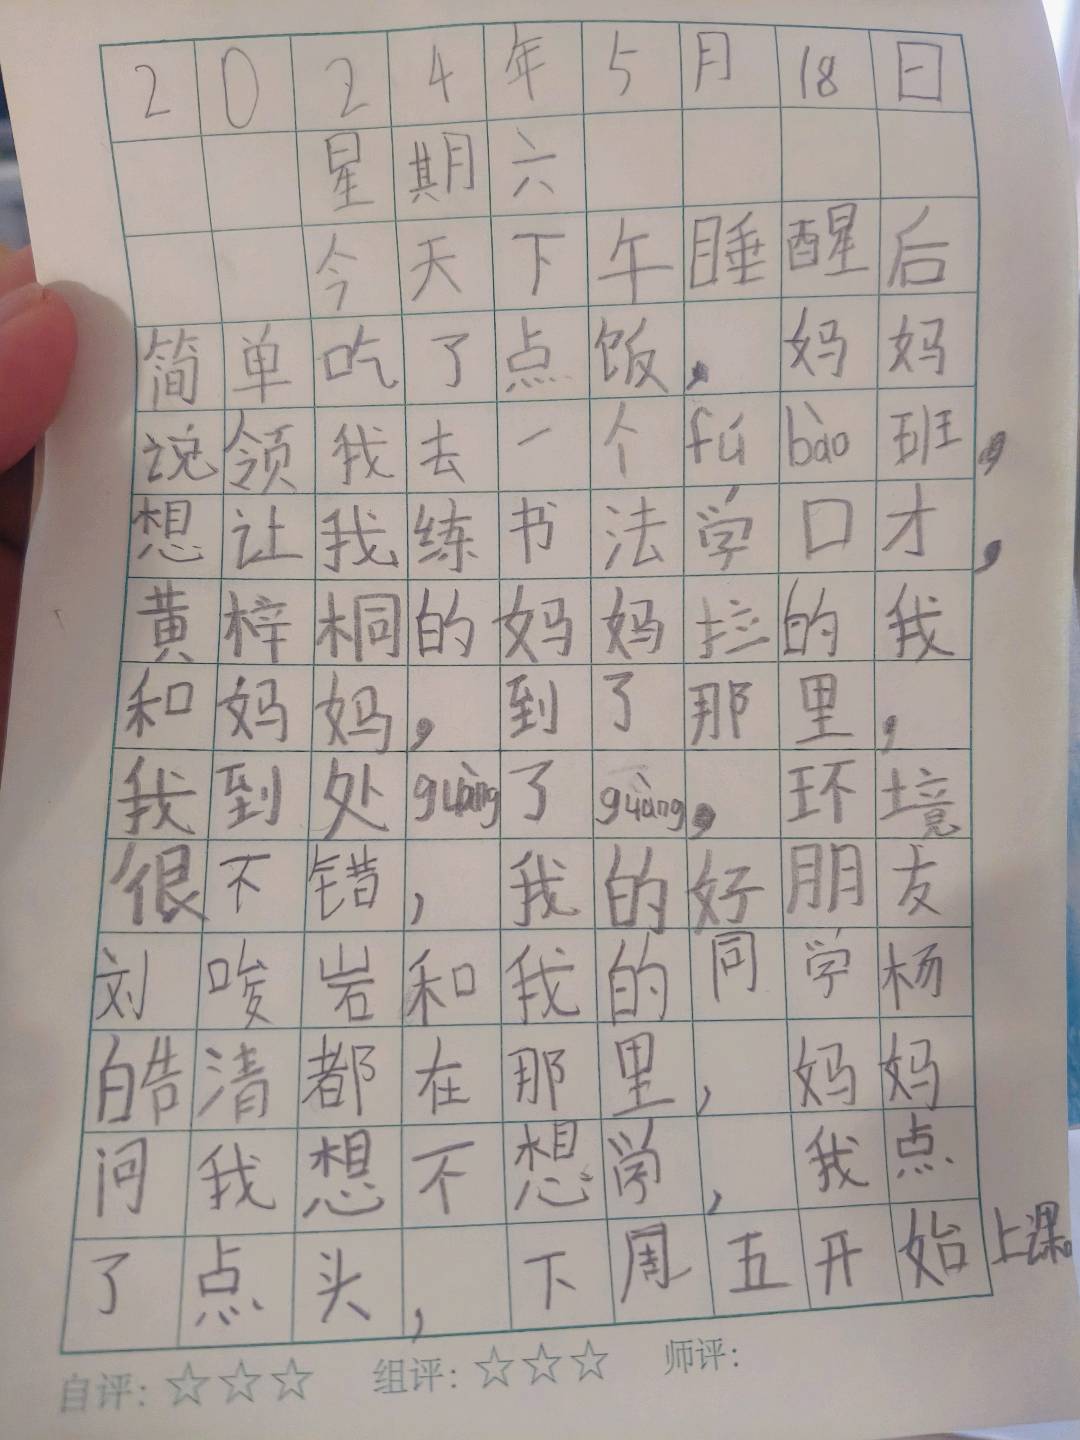 2024年5月18日
星期六
今天下午睡醒后
简单吃了点饭，妈妈
说领我去一个fú bào班，
想让我练书法学口才，
黄梓桐的妈妈拉的我
和妈妈，到了那里，
我到处guàng了guàng，环境
很不错，我的好朋友
刘唆岩和我的同学杨
皓清都在那里，妈妈
问我想不想学，我点
了点头，下周五开始上课。
自评：☆☆☆ 组评：☆☆☆ 师评：